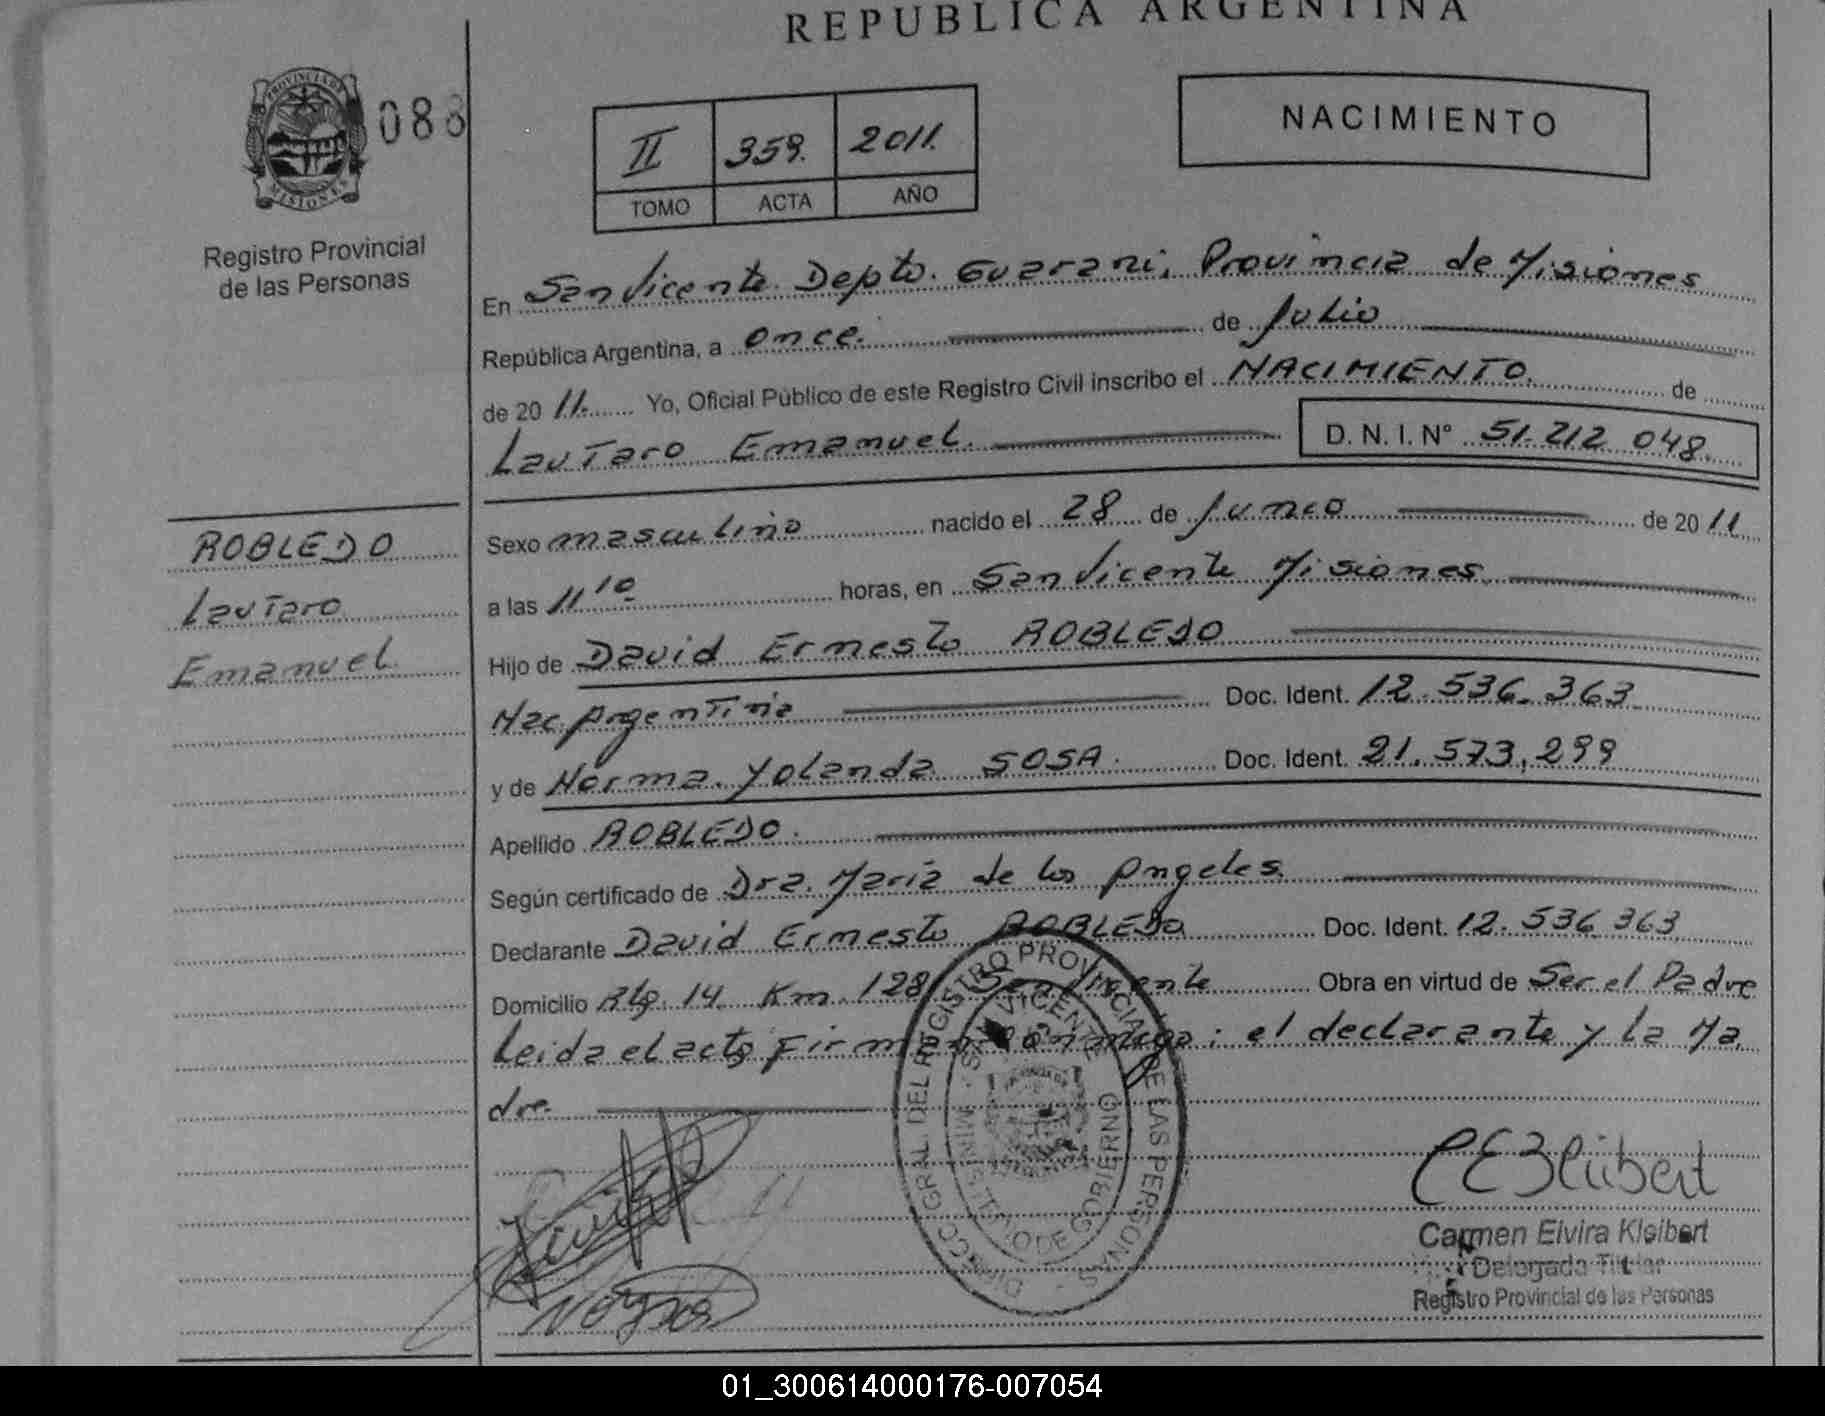 REPUBLICA ARGENTINA
PROVINCIA DE
MISIONES
088
Registro Provincial
de las Personas
II 359. 2011.
TOMO ACTA AÑO
NACIMIENTO
En San Vicente Depto. Guarani, Provincia de Misiones
República Argentina, a once. de Julio
de 20 11. Yo, Oficial Público de este Registro Civil inscribo el NACIMIENTO. de
Lautaro Emanuel. D. N. I. N° 51.212 048.
ROBLEDO
Lautaro
Emanuel
Sexo masculino nacido el 28 de Junio de 20 11
a las 11 10 horas, en San Vicente Misiones.
Hijo de David Ernesto ROBLEDO
Nac. Argentina Doc. Ident. 12.536.363
y de Norma Yolanda SOSA. Doc. Ident. 21.573,299
Apellido ROBLEDO.
Según certificado de Dra. Maria de los Angeles.
Declarante David Ernesto ROBLEDO Doc. Ident. 12.536 363
Domicilio Rta. 14 Km. 128 San Vicente Obra en virtud de Ser el Padre
Leida el acta Firman conmigo: el declarante y la Ma
dre.
DIRECC. GRAL. DEL REGISTRO PROVINCIAL DE LAS PERSONAS
SAN VICENTE
MINISTERIO DE GOBIERNO
CEKleibert
Carmen Elvira Kleibert
Delegada Titular
Registro Provincial de las Personas
01_300614000176-007054